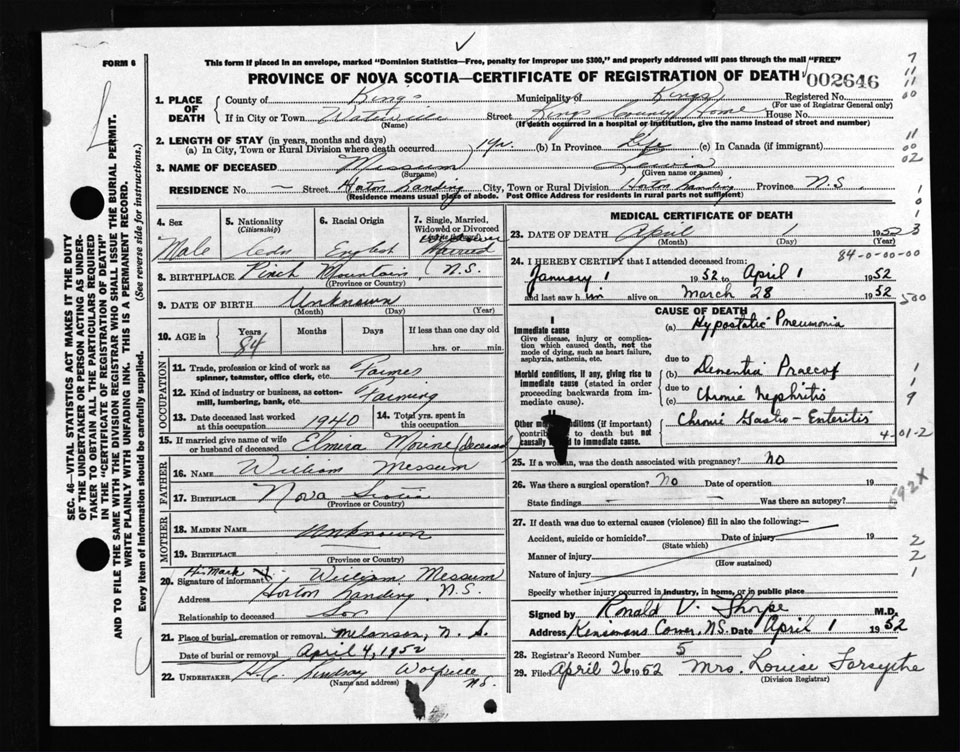 FORM 6
This form if placed in an envelope, marked "Dominion Statistics—Free, penalty for improper use $300," and properly addressed will pass through the mail "FREE"
PROVINCE OF NOVA SCOTIA—CERTIFICATE OF REGISTRATION OF DEATH 002646
1. PLACE OF DEATH County of Kings Municipality of Kings Registered No.
(For use of Registrar General only)
If in City or Town Waterville Street Kings County Home House No.
(Name) (If death occurred in a hospital or institution, give the name instead of street and number)
2. LENGTH OF STAY (in years, months and days)
(a) In City, Town or Rural Division where death occurred (b) In Province Life (c) In Canada (if immigrant)
3. NAME OF DECEASED Messum Lewis
(Surname) (Given name or names)
RESIDENCE No. — Street Horton Landing City, Town or Rural Division Horton Landing Province N.S.
(Residence means usual place of abode. Post Office Address for residents in rural parts not sufficient)
4. Sex Male
5. Nationality (Citizenship)
6. Racial Origin English
7. Single, Married, Widowed or Divorced
8. BIRTHPLACE Mountain N.S.
(Province or Country)
9. DATE OF BIRTH Unknown
(Month) (Day) (Year)
10. AGE in Years 84 Months Days If less than one day old
hrs. or min.
OCCUPATION
11. Trade, profession or kind of work as spinner, teamster, office clerk, etc. Farmer
12. Kind of industry or business, as cotton-mill, lumbering, bank, etc. Farming
13. Date deceased last worked at this occupation 1940
14. Total yrs. spent in this occupation
15. If married give name of wife or husband of deceased Elmira (deceased)
FATHER
16. NAME William Messum
17. BIRTHPLACE Nova Scotia
(Province or Country)
MOTHER
18. MAIDEN NAME Unknown
19. BIRTHPLACE
(Province or Country)
His Mark X
20. Signature of informant William Messum
Address Horton Landing, N.S.
Relationship to deceased Son
21. Place of burial, cremation or removal Melanson, N.S.
Date of burial or removal April 4, 1952
22. UNDERTAKER H.C. Lindsay Wolfville N.S.
(Name and address)
MEDICAL CERTIFICATE OF DEATH
23. DATE OF DEATH April 1 1952
(Month) (Day) (Year)
84-0-00-00
24. I HEREBY CERTIFY that I attended deceased from:
January 1 1952 to April 1 1952
and last saw him alive on March 28 1952
CAUSE OF DEATH
I
Immediate cause
Give disease, injury or complication which caused death, not the mode of dying, such as heart failure, asphyxia, asthenia, etc.
(a) Hypostatic Pneumonia
due to
Morbid conditions, if any, giving rise to immediate cause (stated in order proceeding backwards from immediate cause).
(b) Dementia Praecox
due to
(c) Chronic Nephritis
Other conditions (if important) to death but not causally to immediate cause.
Chronic Gastro-Enteritis
4-01-2
25. If a woman, was the death associated with pregnancy? No
26. Was there a surgical operation? No Date of operation 19
State findings Was there an autopsy?
27. If death was due to external causes (violence) fill in also the following:—
Accident, suicide or homicide? Date of injury 19
(State which)
Manner of injury
(How sustained)
Nature of injury
Specify whether injury occurred in industry, in home, or in public place
Signed by Ronald V. Thorpe M.D.
Address N.S. Date April 1 1952
28. Registrar's Record Number 5
29. Filed April 26 1952 Mrs. Louise Forsythe
(Division Registrar)
SEC. 46—VITAL STATISTICS ACT MAKES IT THE DUTY OF THE UNDERTAKER OR PERSON ACTING AS UNDERTAKER TO OBTAIN ALL THE PARTICULARS REQUIRED IN THE "CERTIFICATE OF REGISTRATION OF DEATH" AND TO FILE THE SAME WITH THE DIVISION REGISTRAR WHO SHALL ISSUE THE BURIAL PERMIT.
WRITE PLAINLY WITH UNFADING INK. THIS IS A PERMANENT RECORD.
Every item of Information should be carefully supplied. (See reverse side for instructions.)
500
592X